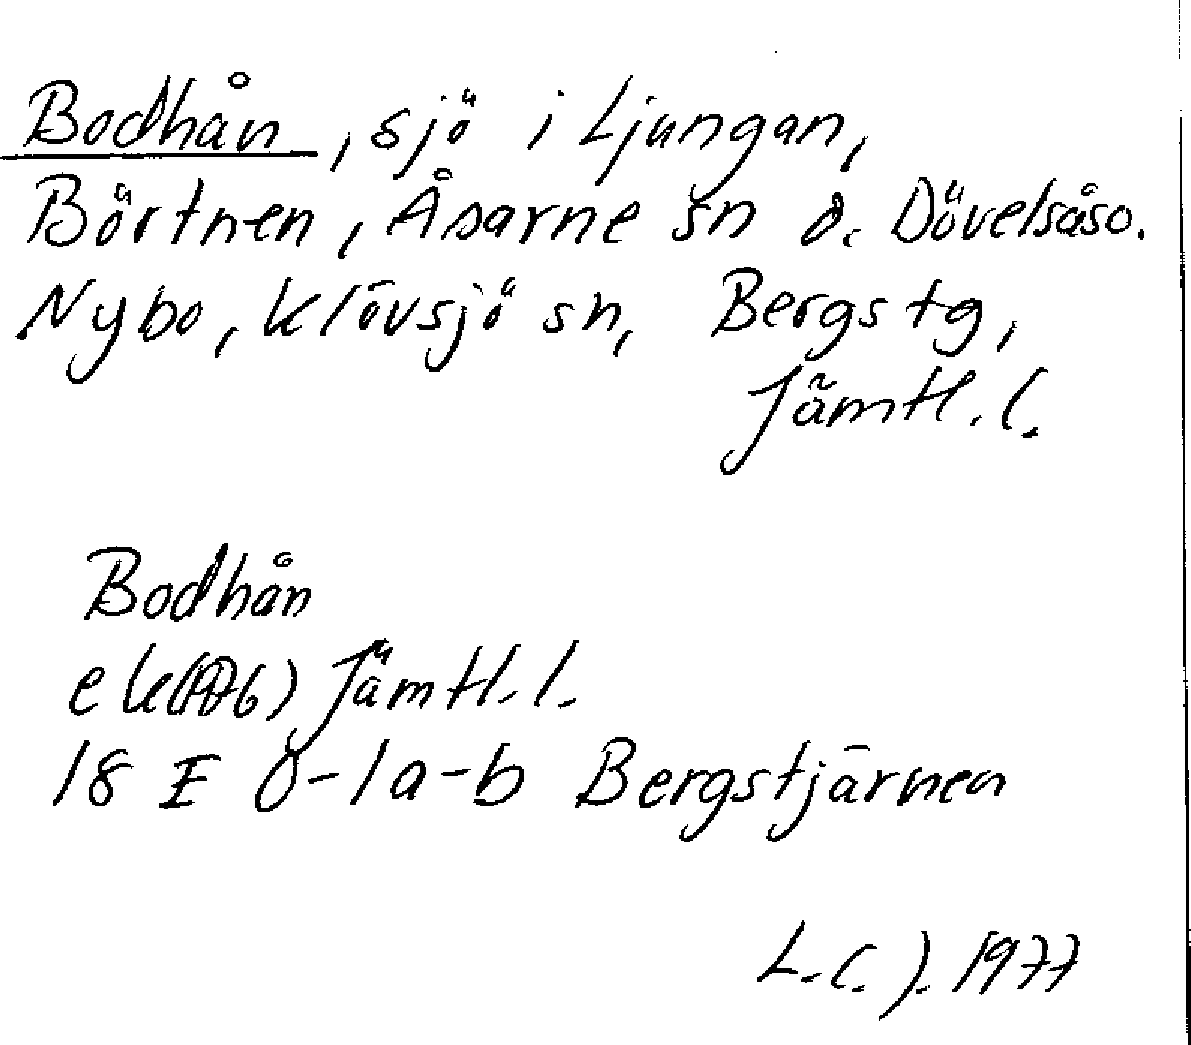 Bodhån, sjö i Ljungan,
Börtnen, Åsarne sn o. Dövelsåso.
Nybo, Klövsjö sn, Bergs tg,
Jämtl. l.
Bodhån
ek(1976) Jämtl. l.
18 E 0-1a-b Bergstjärnen
L.C.J. 1977